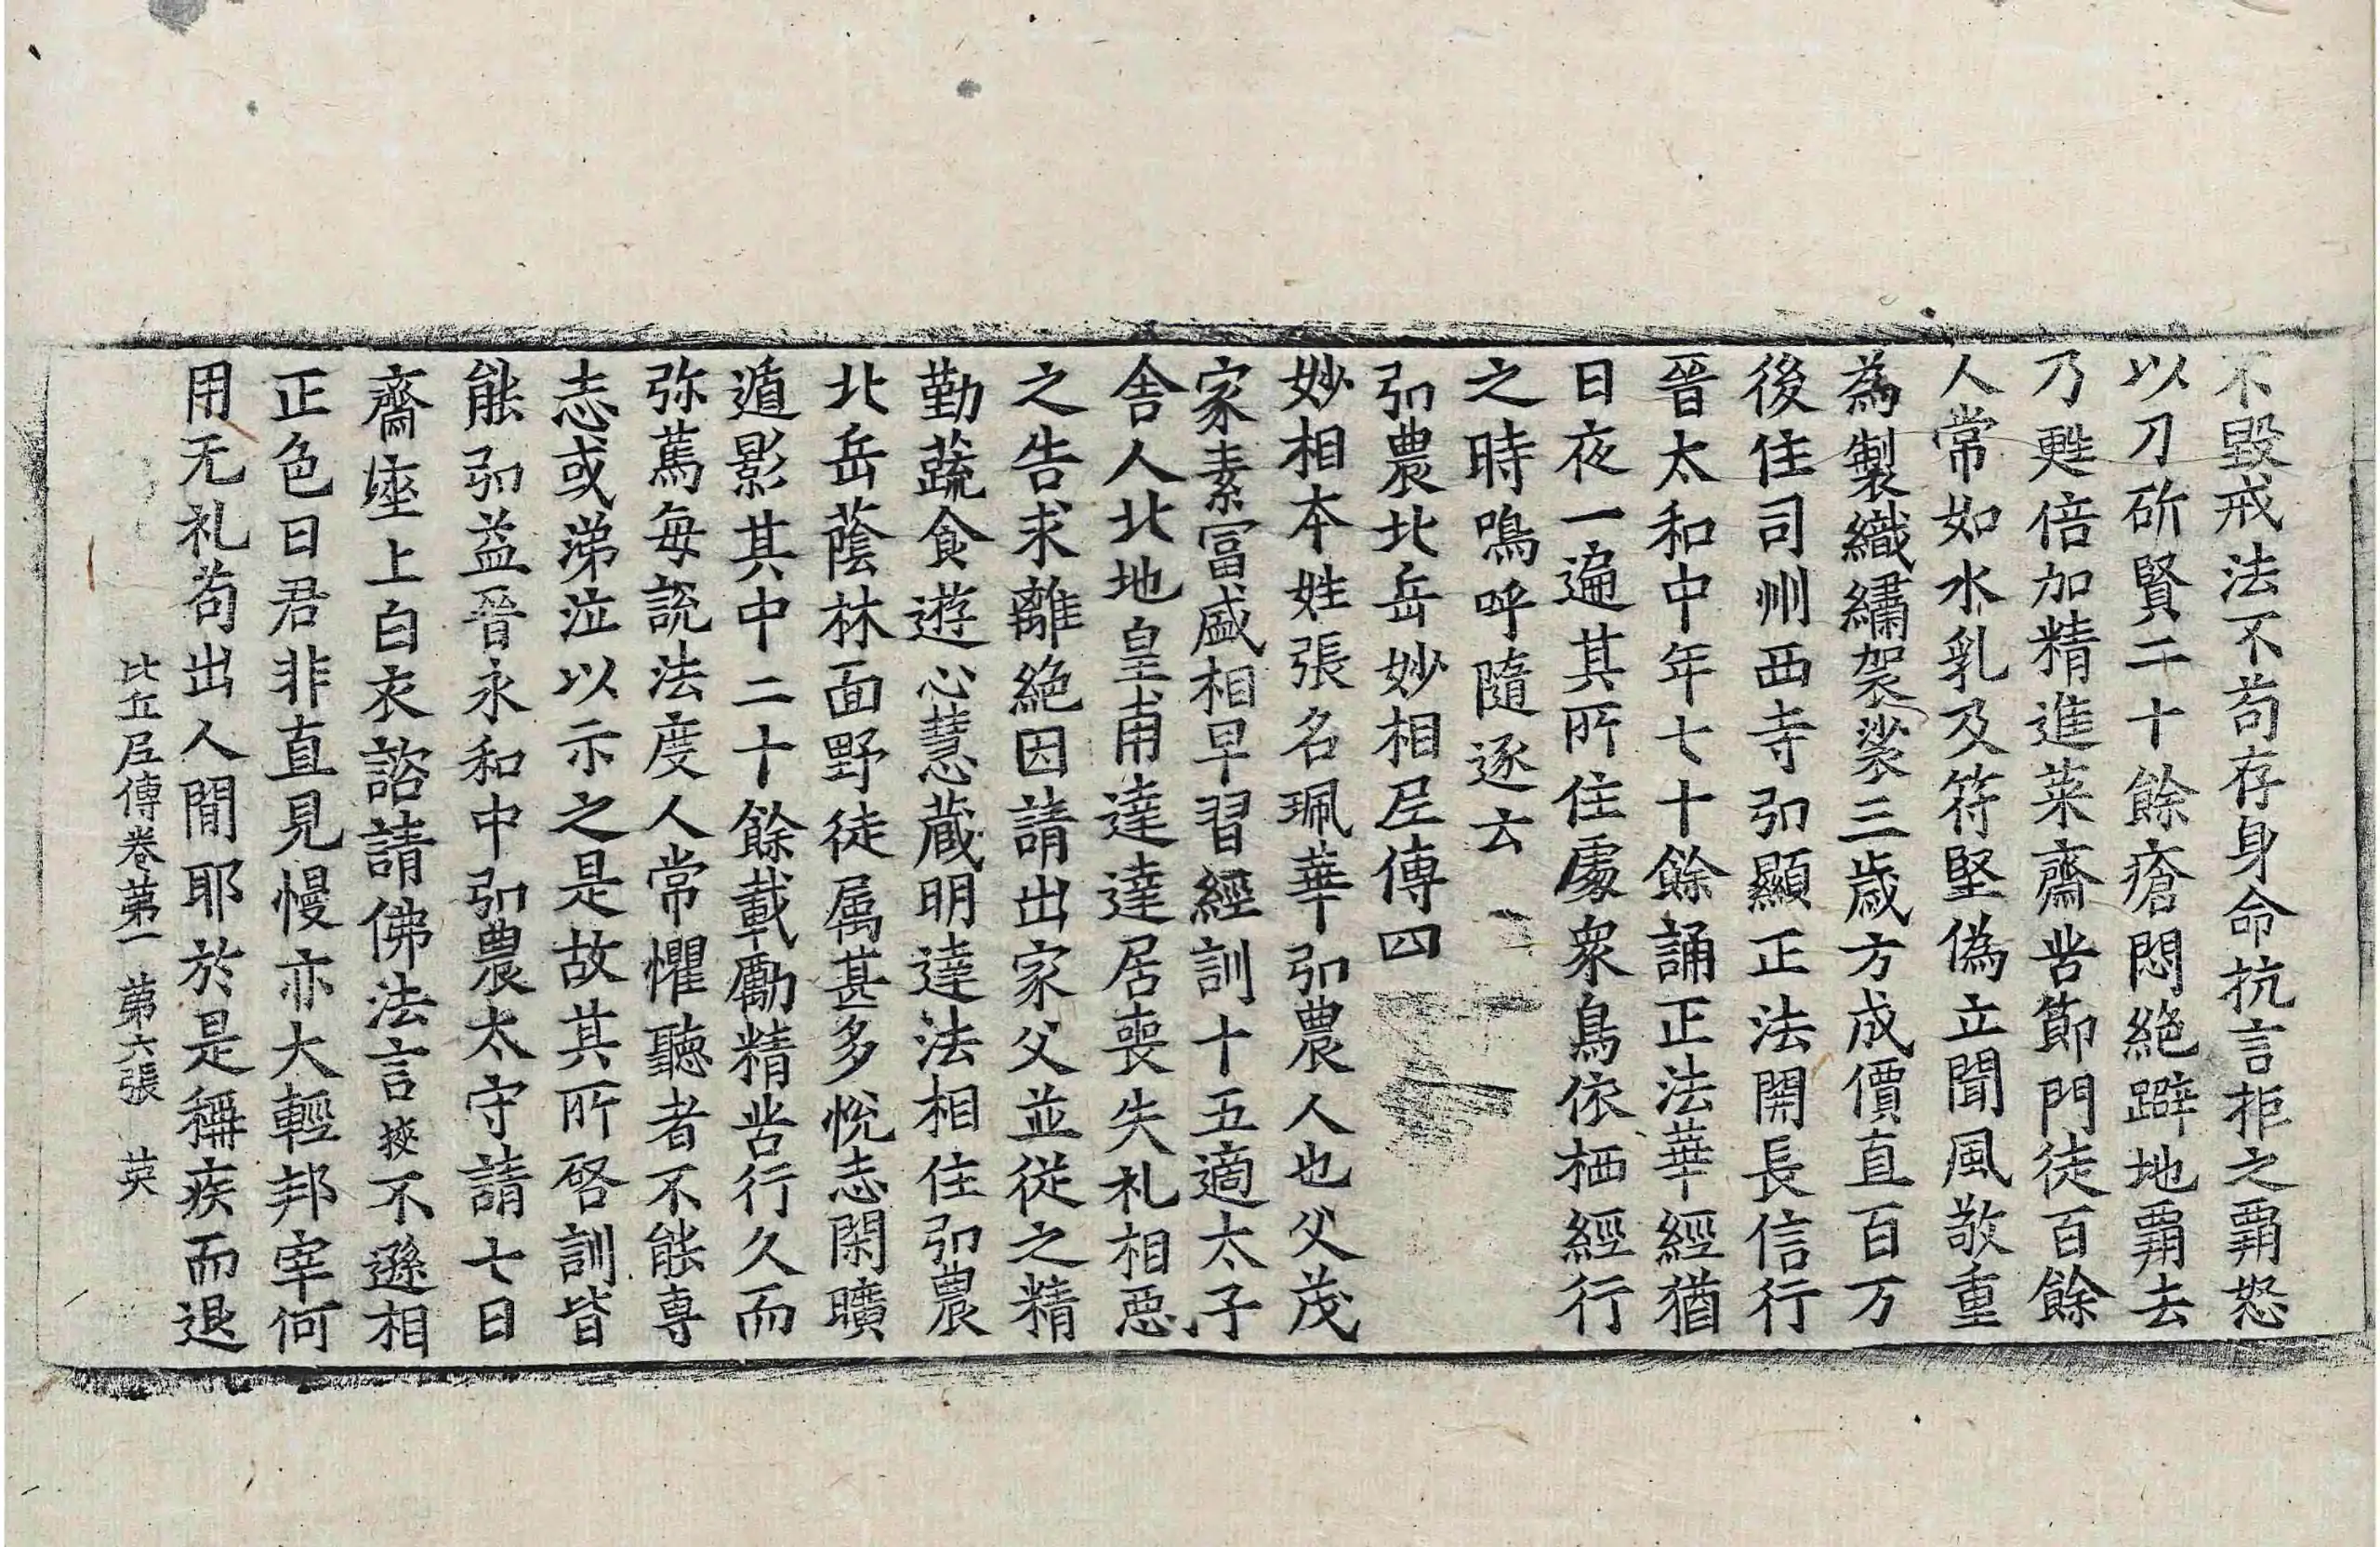 不毀戒法不苟存身命抗言拒之覇怒
以刀斫賢二十餘瘡悶絶躃地覇去
乃甦倍加精進菜齋苦節門徒百餘
人常如水乳及符堅偽立聞風敬重
為製織繡袈裟三歳方成價直百万
後住司州西寺弘顯正法開長信行
晉太和中年七十餘誦正法華經猶
日夜一遍其所住處衆鳥依栖經行
之時鳴呼隨逐云
弘農北岳妙相尼傳四
妙相本姓張名珮華弘農人也父茂
家素冨盛相早習經訓十五適太子
舎人北地皇甫達達居喪失礼相惡
之告求離絶因請出家父並從之精
勤蔬食遊心慧蔵明達法相住弘農
北岳蔭林面野徒属甚多悅志閑曠
遁影其中二十餘載勵精苦行久而
弥篤每說法度人常懼聽者不能専
志或涕泣以示之是故其所啓訓皆
能弘益晉永和中弘農太守請七日
齋座上白衣諮請佛法言挾不遜相
正色曰君非直見慢亦大輕邦宰何
用无礼苟出人間耶於是稱疾而退
比丘尼傳卷第一　第六張　英